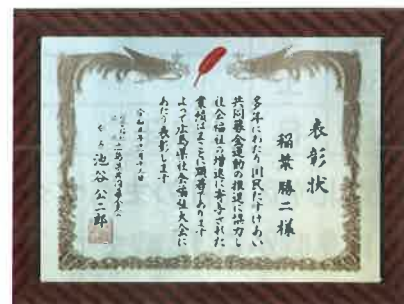 表彰状
稲葉勝二様
多年にわたり国民たすけあい
共同募金運動の推進に協力し
社会福祉の増進に寄与された
業績はまことに顕著であります
よって広島県社会福祉大会に
あたり表彰します
令和五年十月十八日
広島県共同募金会
会長 池谷公二郎